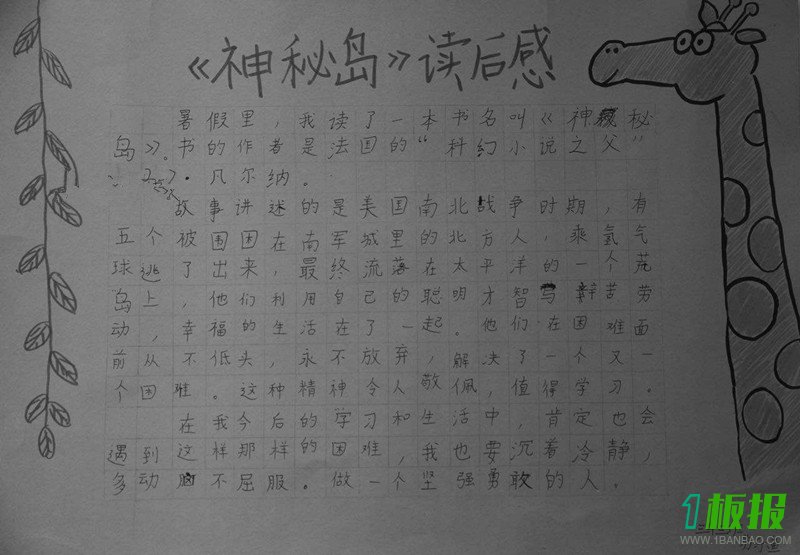 《神秘岛》读后感
暑假里，我读了一本书名叫《神秘
岛》。书的作者是法国的“科幻小说之父”
·凡尔纳。
故事讲述的是美国南北战争时期，有
五个被围困在南军城里的北方人，乘氢气
球逃了出来，最终流落在太平洋的一个荒
岛上，他们利用自己的聪明才智与辛苦劳
动，幸福的生活在了一起。他们在困难面
前从不低头，永不放弃，解决了一个又一
个困难。这种精神令人敬佩，值得学习。
在我今后的学习和生活中，肯定也会
遇到这样那样的困难，我也要沉着冷静，
多动脑不屈服。做一个坚强勇敢的人。
1板报
WWW.1BANBAO.COM